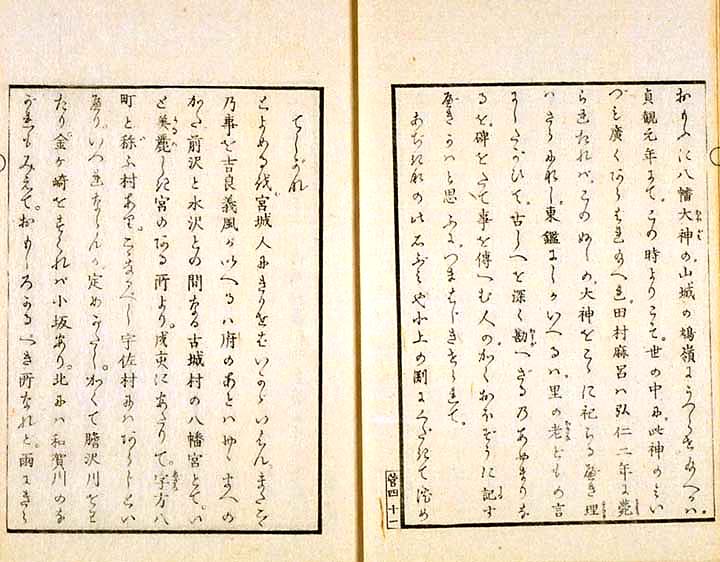 おもふに八幡大神の山城の鳩嶺にうつらせ給へるハ
貞観元年にて。この時よりこそ。世の中に此神のミい
づも廣くあらはれ給へれ。田村麻呂ハ弘仁二年に薨
られたれバ。このぬしの大神をこゝに祀らるべき理
ハさらになし。東鑑にしかいへるハ。里の老どもの言
にしたがひて。古しへを深く勘へざる乃あやまりな
るを。碑をたてゝ事を傳へむ人のかくおほぞうに記す
べきかハと思ふに。つまはじきせられて。
あぢきなの此石ぶミや水上の
にくだきて
菅四十一
てしがな
とよめる
宮城人にきかせはいかゞいはん。またこ
乃事を吉良義風がいへるハ府のあとハゆくすへの
かた前沢と水沢との間なる古城村の八幡宮とて。い
と美麗しき宮のある所より。戌亥にあたりて。字方八
町と称ふ村あり。こゝなるべし宇佐村にハあらじとい
へり。いづれならんか定めがたし。かくて膽沢川をわ
たり。金ヶ崎をすぐれバ小坂あり。北にハ和賀川のな
がれもみえて。おもしろかるべき所なれど。雨にきら